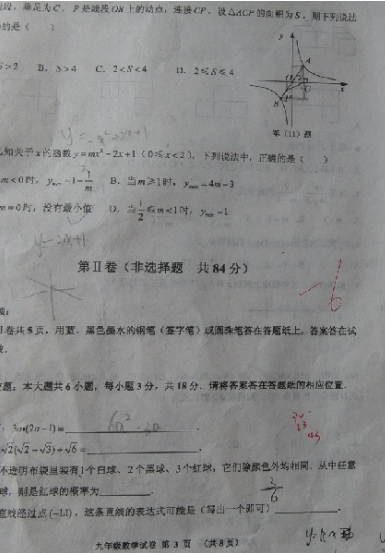 段，垂足为C．P是线段OB上的动点，连接CP．设△ACP的面积为S，则下列说法
的是（　）
S>2　B．S>4　C．2<S<4　D．2≤S≤4
y
A
x
B
第（11）题
y=-x²-2x+1
知关于x的函数y=mx²-2x+1（0≤x<2），下列说法中，正确的是（　）
m<0时，y=1-1/m　B．当m≥1时，y=4m-3
m=0时，没有最小值　D．当1/2≤m<1时，y=-1
y=-2x+1
第Ⅱ卷（非选择题　共84分）
-6
Ⅱ卷共5页，用蓝、黑色墨水的钢笔（签字笔）或圆珠笔答在答题纸上，答案答在试
空题：本大题共6小题，每小题3分，共18分．请将答案答在答题纸的相应位置．
：3a•(2a-1)=　6a²-3a
√2(√2-√3)+√6=
不透明布袋里装有1个白球、2个黑球、3个红球，它们除颜色外均相同．从中任意
球，则是红球的概率为　3/6
直线经过点(-1,1)，这条直线的表达式可能是（写出一个即可）
九年级数学试卷 第 3 页 （共8页）